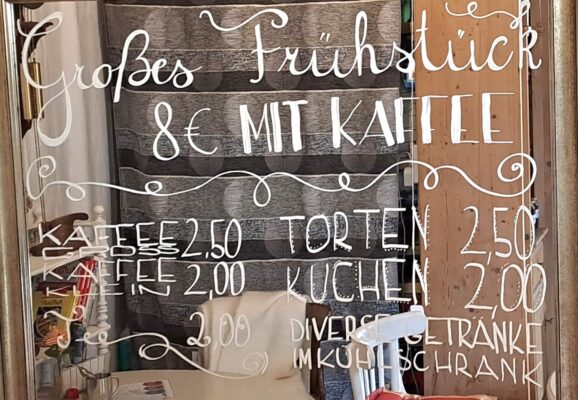 Großes Frühstück
8€ MIT KAFFEE
KAFFEE GROSS 2,50
KAFFEE KLEIN 2,00
2,00
TORTEN 2,50
KUCHEN 2,00
DIVERSE GETRÄNKE
IM KÜHLSCHRANK